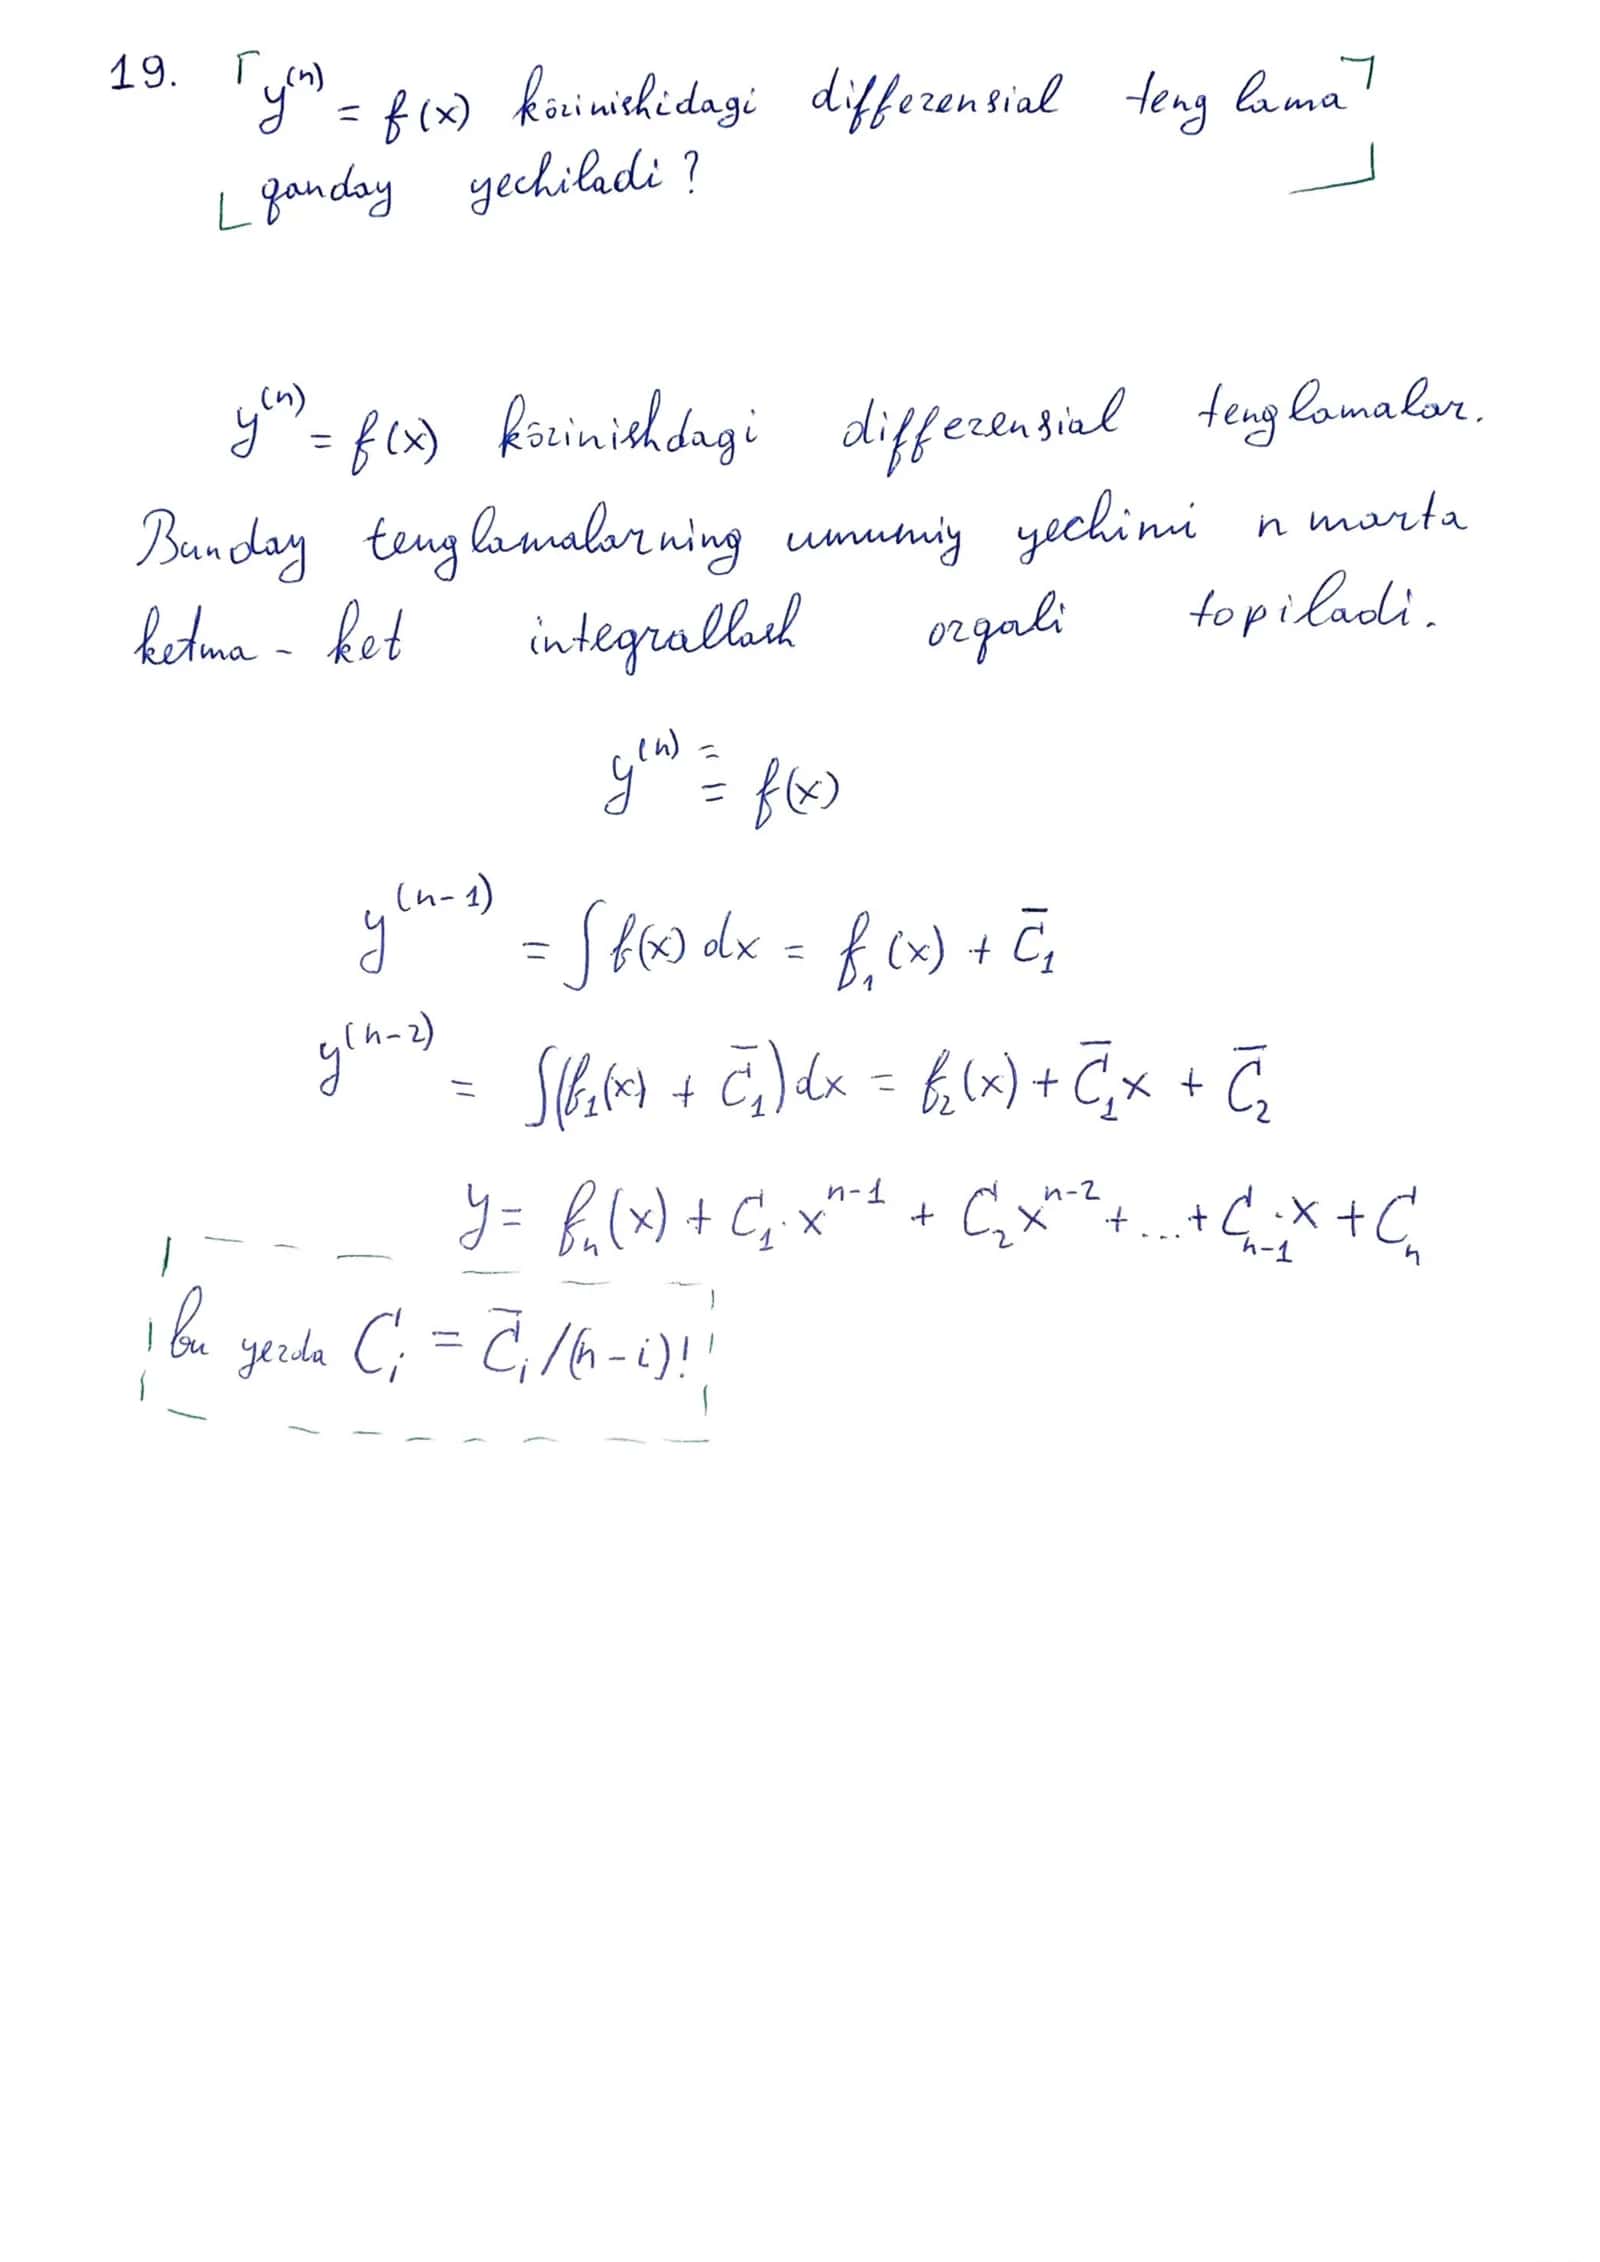 19. y⁽ⁿ⁾ = f(x) körinishidagi differensial teng lama
qanday yechiladi ?
y⁽ⁿ⁾ = f(x) körinishdagi differensial tenglamalar.
Bunday tenglamalarning umumiy yechimi n marta
ketma - ket integrallash orqali topiladi.
y⁽ⁿ⁾ = = f(x)
y⁽ⁿ⁻¹⁾ = ∫ f(x) dx = f₁(x) + C̄₁
y⁽ⁿ⁻²⁾ = ∫(f₁(x) + C̄₁)dx = f₂(x) + C̄₁x + C̄₂
y = fₙ(x) + C₁·xⁿ⁻¹ + C₂xⁿ⁻² + ... + Cₙ₋₁·x + Cₙ
bu yerda Cᵢ = C̄ᵢ/(n-i)!